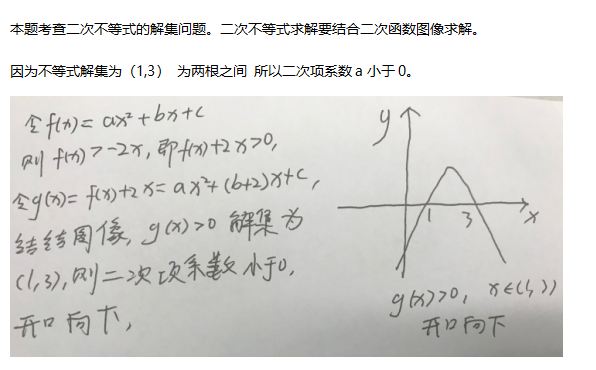 本题考查二次不等式的解集问题。二次不等式求解要结合二次函数图像求解。
因为不等式解集为（1,3） 为两根之间 所以二次项系数 a 小于 0。
令f(x)= ax²+bx+c
则 f(x)>-2x, 即f(x)+2x>0,
令g(x)= f(x)+2x= ax²+(b+2)x+c,
结结图像, g(x)>0 解集为
(1,3),则二次项系数小于0,
开口向下,
y
1
3
x
g(x)>0, x∈(1,3)
开口向下